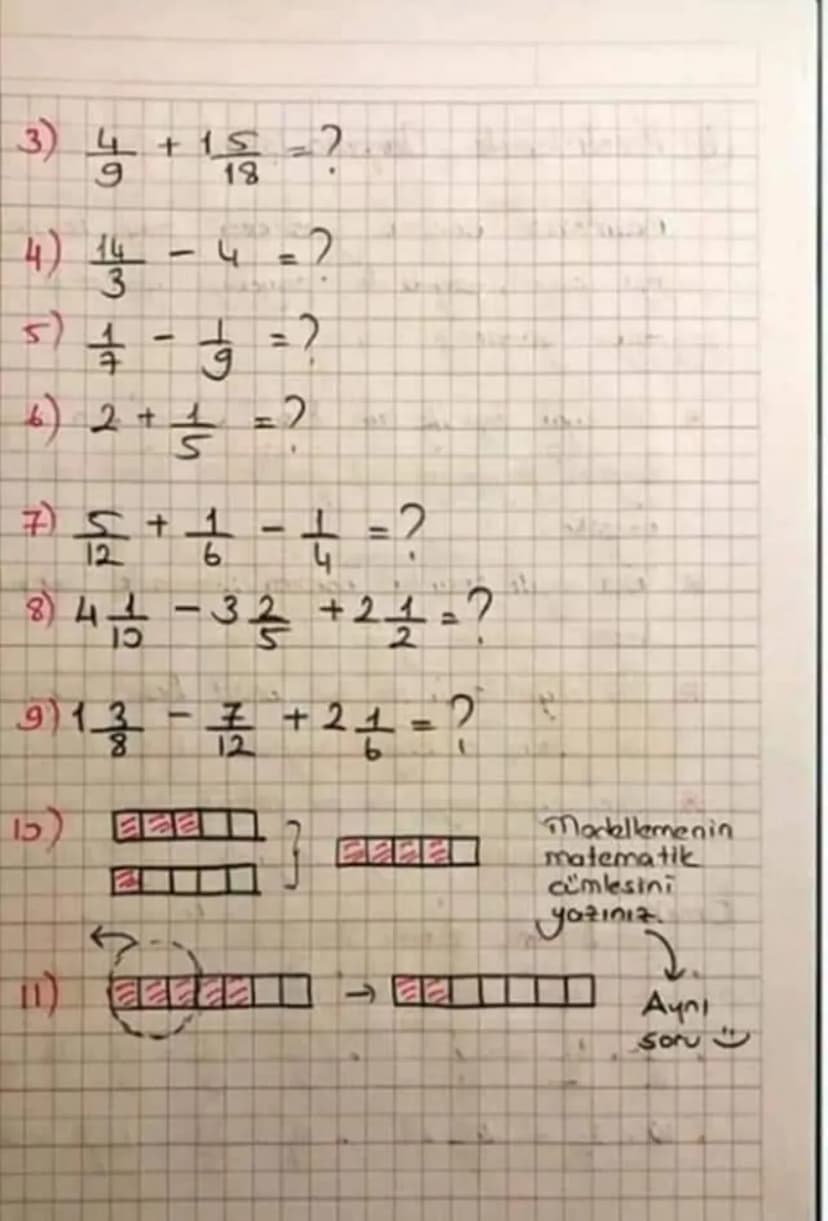 3) 4/9 + 1 5/18 = ?
4) 14/3 - 4 = ?
5) 1/7 - 1/9 = ?
6) 2 + 1/5 = ?
7) 5/12 + 1/6 - 1/4 = ?
8) 4 1/10 - 3 2/5 + 2 1/2 = ?
9) 1 3/8 - 7/12 + 2 1/6 = ?
10)
Modellemenin
matematik
cümlesini
yazınız.
11)
Aynı
soru :)